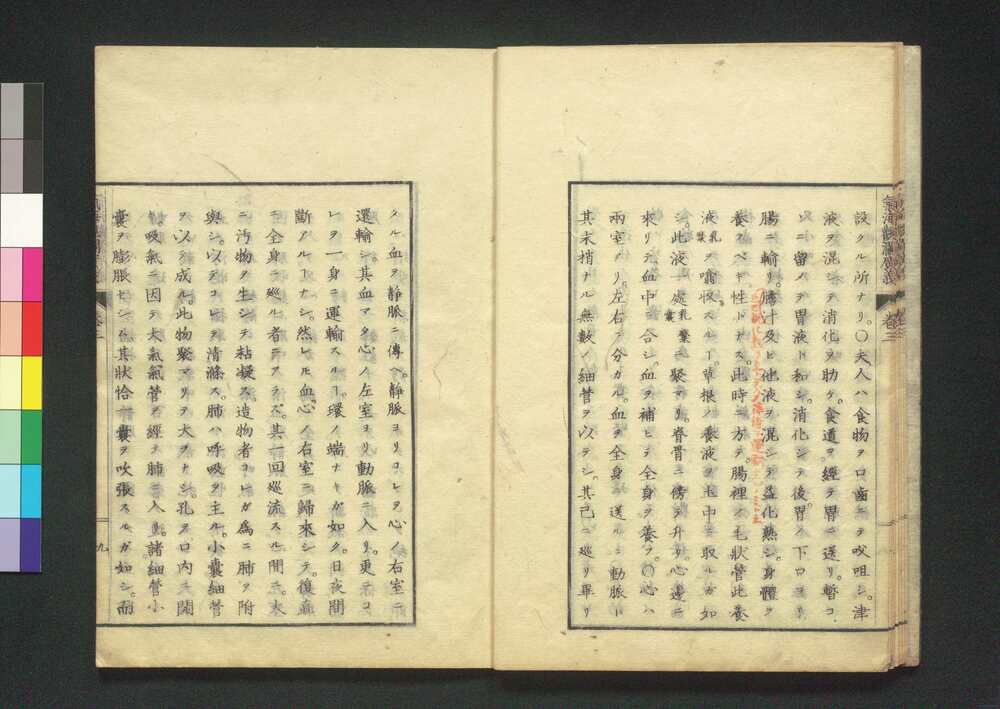 設クル所ナリ。○夫人ハ食物ヲ口齒ニテ咬咀シ。津
液ヲ混シテ消化ヲ助ケ。食道ヲ經テ胃ニ送リ。暫ク
コニ留メテ胃液ト和シ。消化シテ後胃ノ下口ヨリ
腸ニ輸リ。膽汁及ヒ他液ヲ混シテ益化熟シ。身體ヲ
養フベキ性トナス。此時ニ方テ。腸裡ノ毛狀管此養
液 乳糜 ヲ噏收スルヿ。草根ノ養液ヲ土中ニ取ルガ如
シ。此液一處 乳糜囊 ニ聚マリ。脊骨ニ傍テ升リ。心邊ニ
來リテ。血中ニ合シ。血ヲ補ヒテ全身ヲ養フ。○心ハ
兩室アリ。左右ヲ分カル。血ヲ全身ニ送ルヲ動脈ト
其末梢ナル無數ノ細管ヲ以テシ。其已ニ巡リ畢リ
タル血ヲ靜脈ニ傳ヘ。靜脈ヨリコレヲ心ノ右室ニ
還輸シ。其血マタ心ノ左室ヨリ動脈ニ入リ。更ニコ
レヲ一身ニ運輸スルヿ。環ノ端ナキガ如ク。日夜間
斷アルヿナシ。然レモ血心ノ右室ニ歸來シテ。復直
ニ全身ニ巡ル者ニアラス。其一回巡流スル間ニ。
ニ汚物ヲ生シテ粘凝ス。造物者コレガ爲ニ肺ヲ附
與シ。以テコレヲ清滌ス。肺ハ呼吸ヲ主ル。小囊細管
ヲ以テ成ル。此物聚マリテ大ヲナシ。孔ヲ口內ニ開
ク。吸氣ニ因テ大氣氣管ヲ經テ肺ニ入リ。諸細管小
囊ヲ膨脹セシム。其狀恰モ囊ヲ吹張スルガ如シ。而
卷三
九